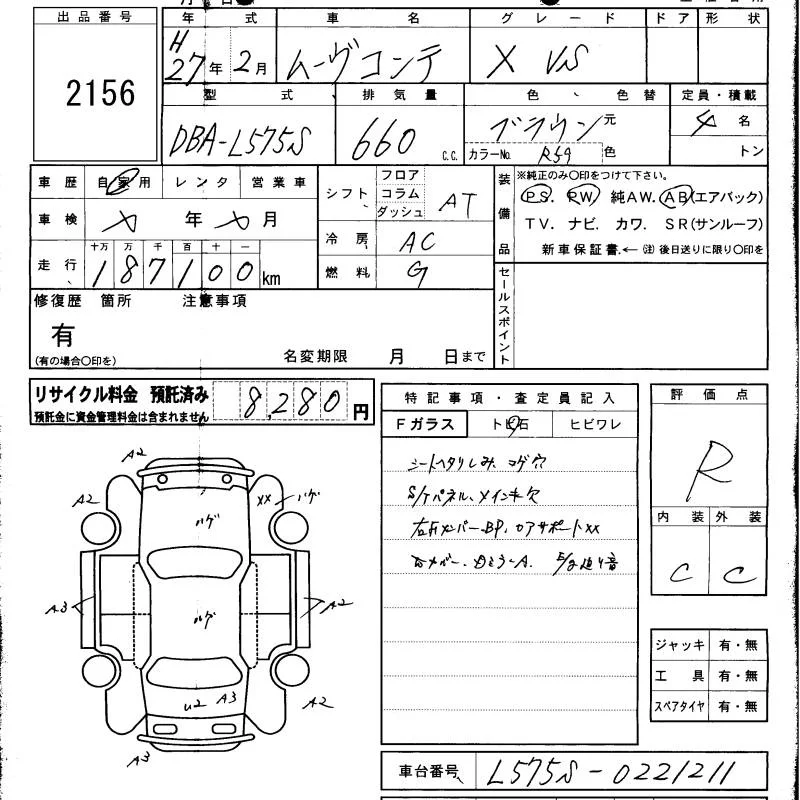 出品番号 年 式 車 名 グ レ ー ド ド ア 形 状
2156
H
27 年 2 月 ムーヴコンテ X VS
型 式 排 気 量 色 、 色 替 定員・積載
DBA-L575S 660 c.c. ブラウン 元 4 名
カラーNo. R59 色 トン
車 歴 自家用 レンタ 営業車
車 検 年 月
走 行 十万 万 千 百 十 一
187100 km
シフト フロア コラム ダッシュ AT
冷 房 AC
燃 料 G
装備品 ※純正のみ○印をつけて下さい。
PS. PW 純AW. AB(エアバック)
TV. ナビ. カワ. SR(サンルーフ)
新車保証書.←(注)後日送りに限り○印を
セールスポイント
修復歴 箇所 注意事項
有
(有の場合○印を) 名変期限 月 日まで
リサイクル料金 預託済み 8,280 円
預託金に資金管理料金は含まれません
特記事項・査定員記入
Fガラス トビ石 ヒビワレ
シートヘタリしみ、コゲ穴
評 価 点
R
内 装 外 装
C C
A2
A2 XX ハゲ
ハゲ
A3 A2
ハゲ
U2 A3 A2
A3
ジャッキ 有・無
工 具 有・無
スペアタイヤ 有・無
車台番号、 L575S-0221211